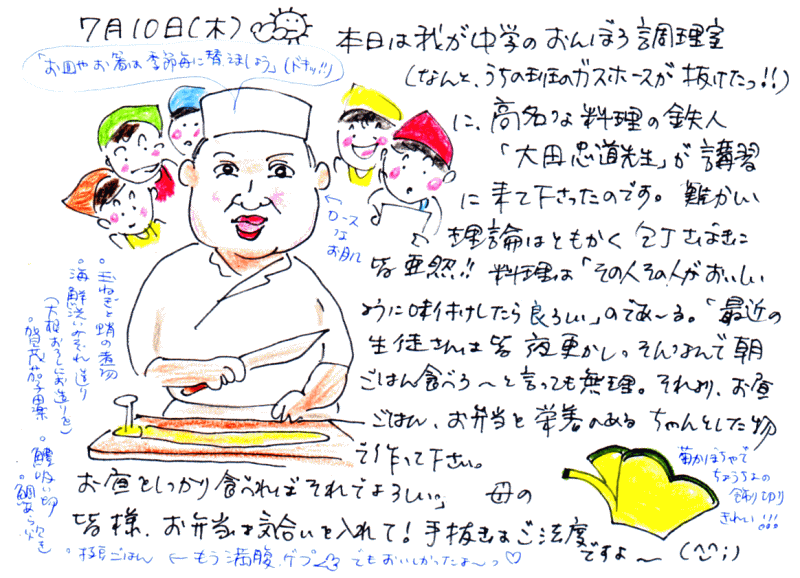 7月10日(木)
「お皿やお箸は季節毎に替えましょう」(ドキッ!!)
本日は我が中学のおんぼろ調理室
(なんと、うちの班のガスホースが抜けたっ!!)
に、高名な料理の鉄人
「大田忠道先生」が講習
に来て下さったのです。難かしい
理論はともかく包丁さばきに
皆亜然!! 料理は「その人その人がおいしい
ように味付けしたら良ろしい」のであ〜る。「最近の
生徒さんは皆夜更かし。そんなんで朝
ごはん食べろ〜と言っても無理。それより、お昼
ごはん、お弁当を栄養のあるちゃんとした物
で作って下さい。
お昼をしっかり食べればそれでよろしい。」 母の
皆様、お弁当は気合いを入れて!手抜きはご法度
ですよ〜(^^;)
←ロースなお肌
。玉ねぎと蛸の煮物
。海鮮洗いみぞれ造り
(大根おろしにお造りを)
。賀茂茄子田楽
。鱧吸い切
。鯛あら炊き
菊かぼちゃで
ちょうちょの
飾り切り
きれい!!!
。枝豆ごはん ←もう満腹、ゲプ でもおいしかったよ〜っ♡